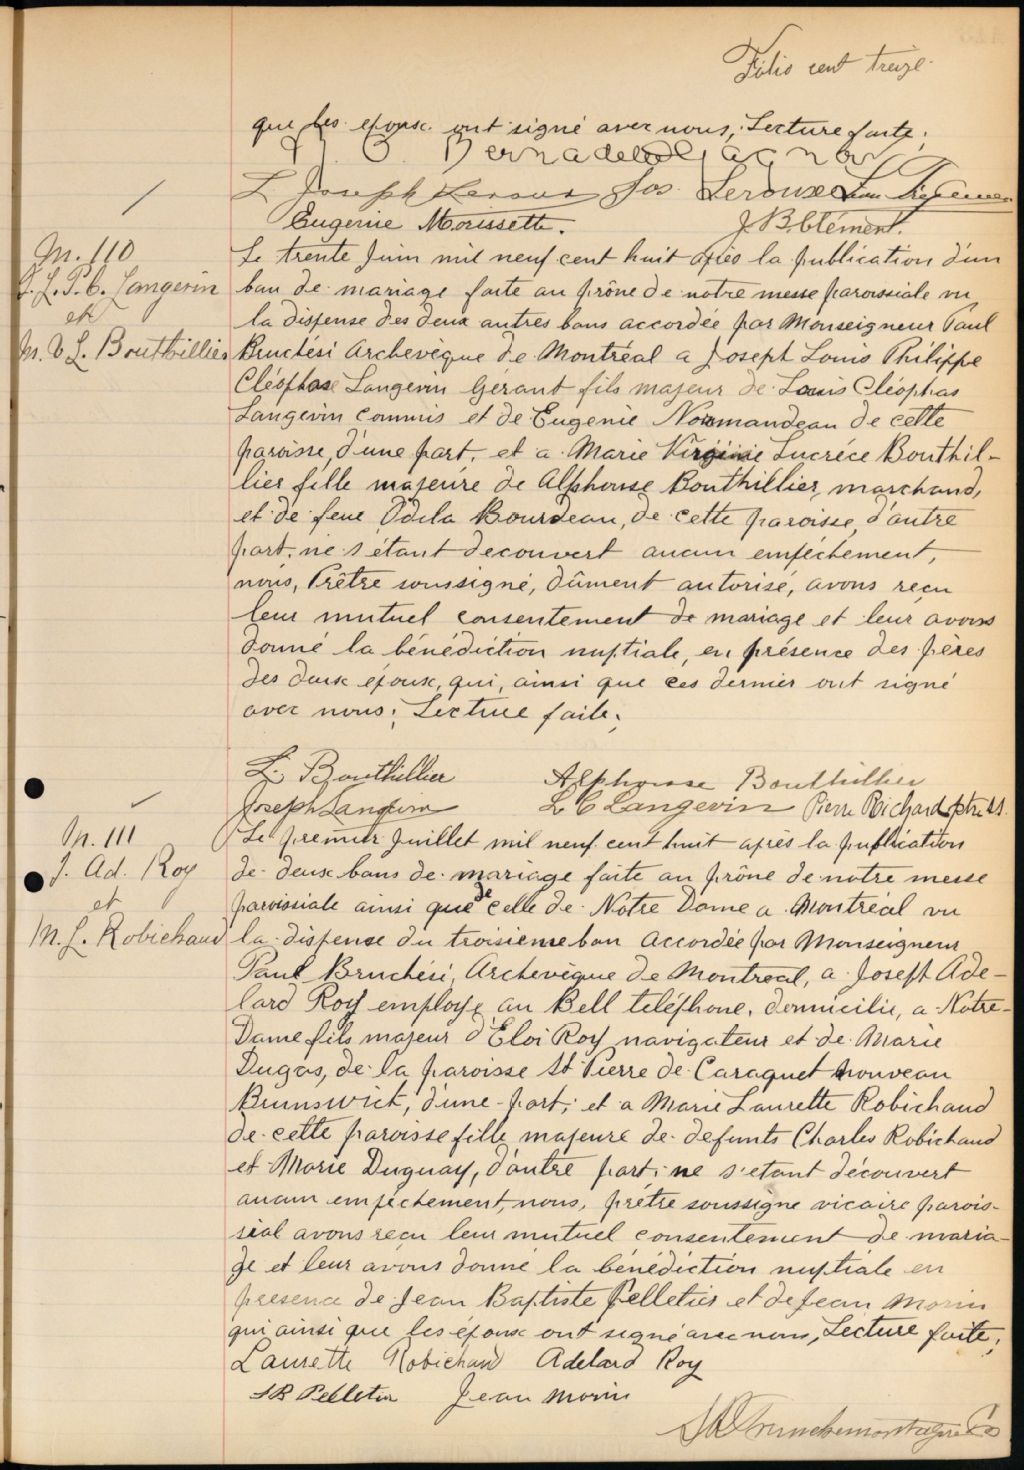 Folio cent treize
que les époux ont signé avec nous, Lecture faite.
Bernadette Gagnon
L Joseph Leroux Jos. Leroux
Eugenie Morissette. J. B. Clément.
M. 110
J. L. P. C. Langevin
et
M. V. L. Bouthillier
Le trente Juin mil neuf cent huit après la publication d'un
ban de mariage faite au prône de notre messe paroissiale vu
la dispense des deux autres bans accordée par Monseigneur Paul
Bruchési Archevèque de Montréal a Joseph Louis Philippe
Cléophase Langevin Gérant fils majeur de Louis Cléophas
Langevin commis et de Eugenie Normandeau de cette
paroisse, d'une part, et a Marie Virginie Lucréce Bouthil-
lier fille majeure de Alphonse Bouthillier, marchand,
et de feue Odila Bourdeau, de cette paroisse, d'autre
part, ne s'étant decouvert aucun empêchement,
nous, Prêtre soussigné, dûment autorisé, avons reçu
leur mutuel consentement de mariage et leur avons
donné la bénédiction nuptiale, en présence des pères
des deux époux, qui, ainsi que ces dernier ont signé
avec nous; Lecture faite.
L. Bouthillier Alphonse Bouthillier
Joseph Langevin L C Langevin Pierre Richard ptre S.S.
M. 111
J. Ad. Roy
et
M. L. Robichaud
Le premier Juillet mil neuf cent huit après la publication
de deux bans de mariage faite au prône de notre messe
paroissiale ainsi que de celle de Notre Dame a Montréal vu
la dispense du troisieme ban accordée par Monseigneur
Paul Bruchési, Archevèque de Montreal, a Joseph Ade-
lard Roy employé au Bell teléphone, domicilié, a Notre-
Dame fils majeur d'Eloi Roy navigateur et de Marie
Dugas, de la paroisse St Pierre de Caraquet nouveau
Brunswick, d'une part; et a Marie Laurette Robichaud
de cette paroisse fille majeure de defunts Charles Robichaud
et Marie Duguay, d'autre part; ne s'etant découvert
aucun empêchement, nous, prêtre soussigne vicaire parois-
sial avons reçu leur mutuel consentement de maria-
ge et leur avons donné la bénédiction nuptiale en
presence de Jean Baptiste Pelletier et de Jean Morin
qui ainsi que les époux ont signé avec nous, Lecture faite;
Laurette Robichaud Adelard Roy
J B Pelletier Jean Morin